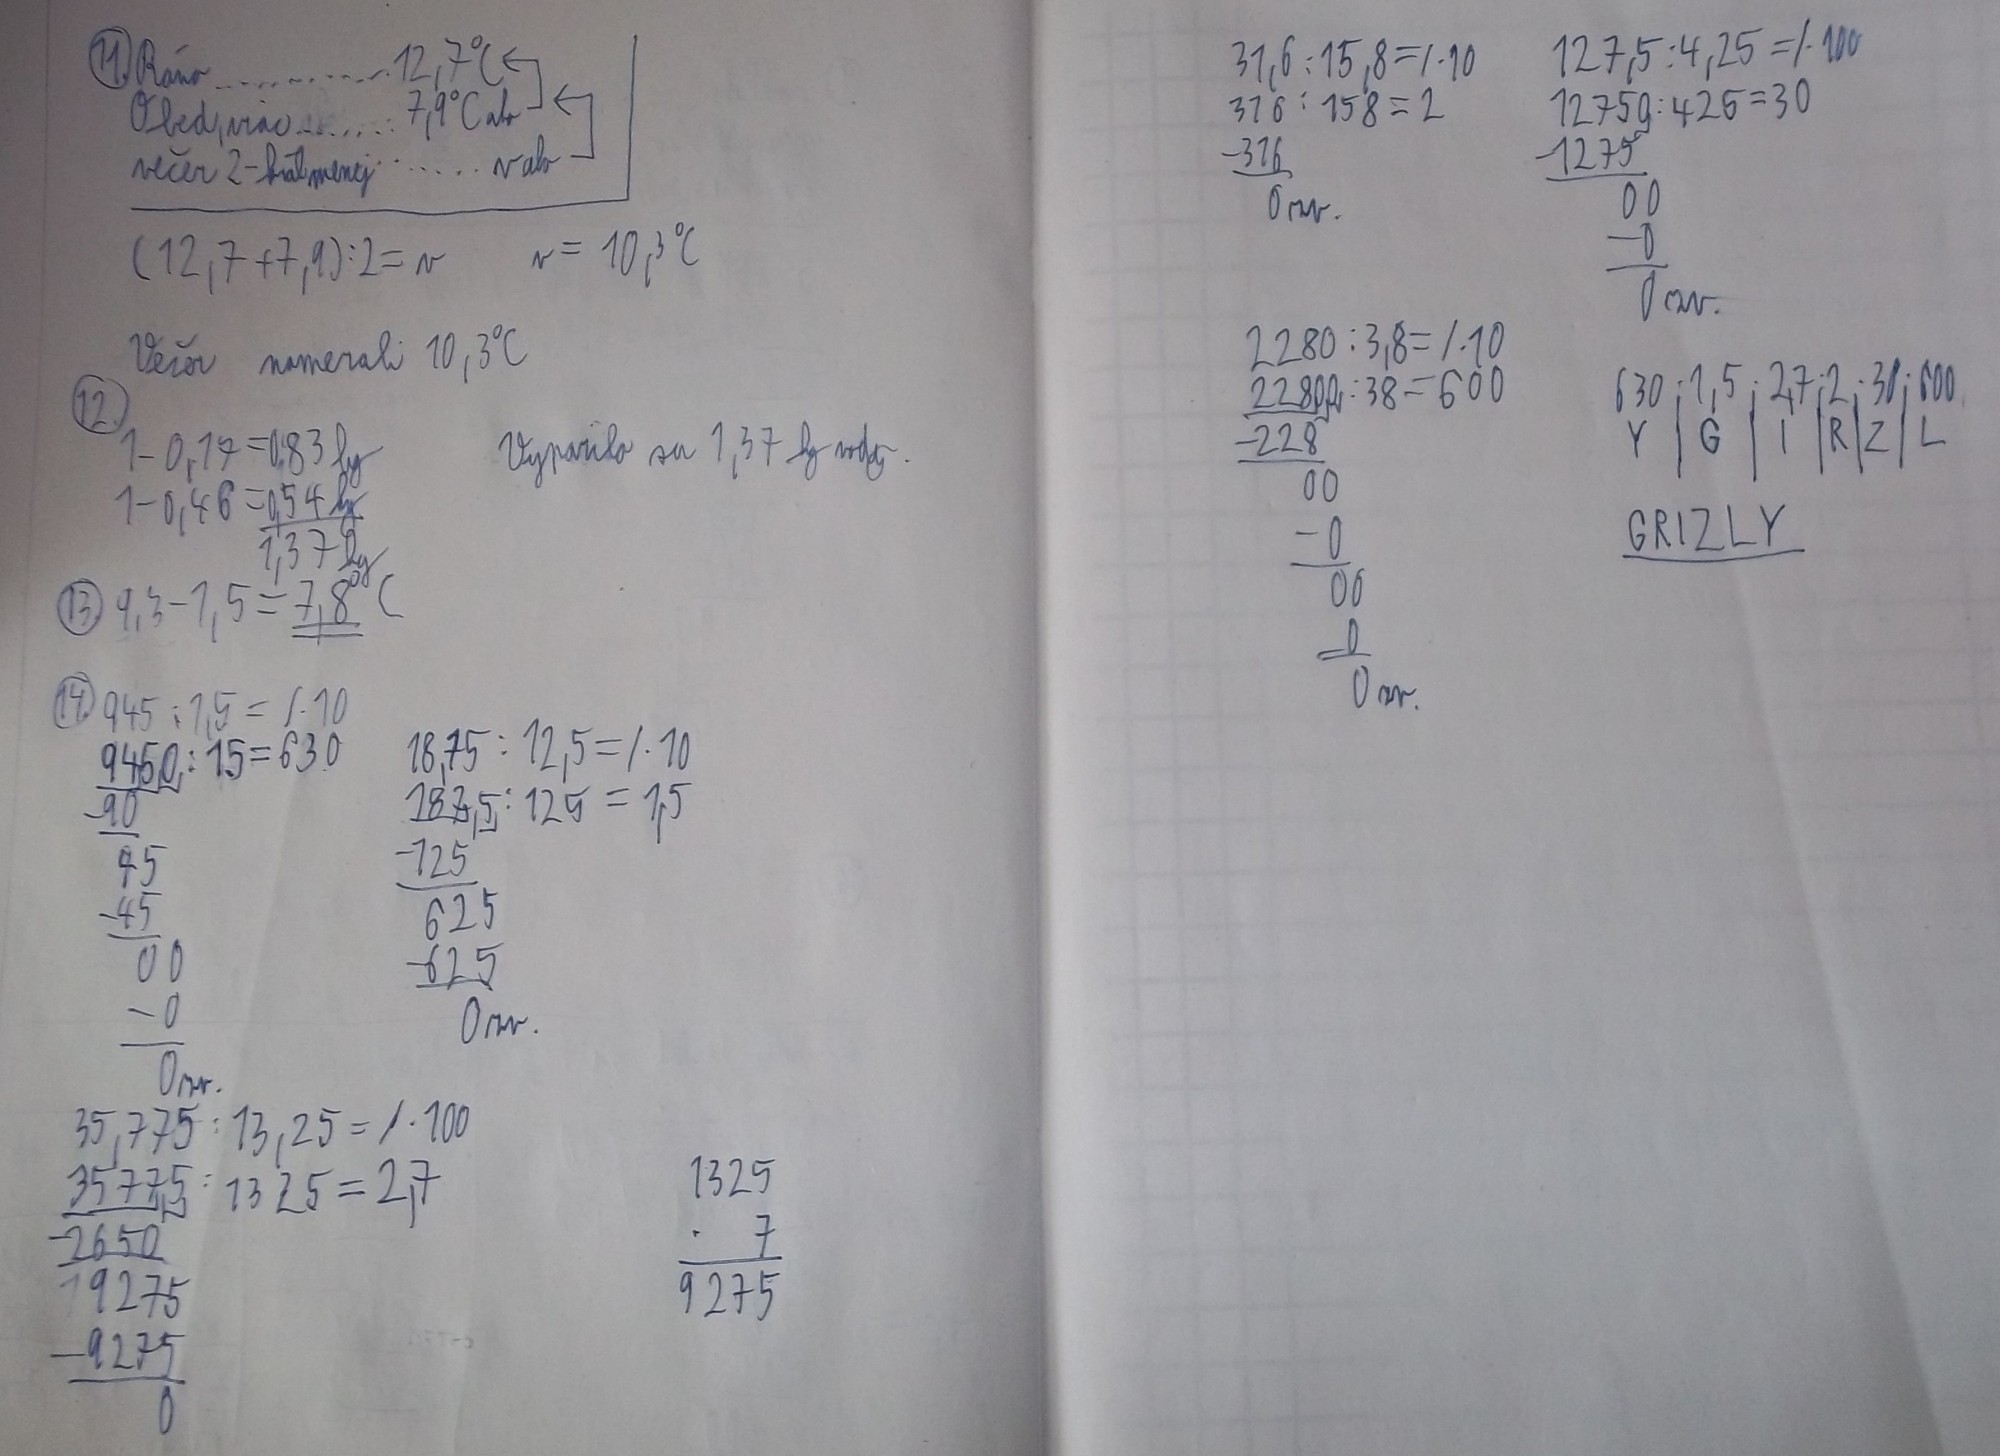 11. Ráno ............ 12,7°C
Obed, viac ........ 7,9°C ako
večer 2-krát menej ...... v ako
(12,7+7,9):2=v v= 10,3°C
Večer namerali 10,3°C
12.
1-0,17=0,83 kg Vyparilo sa 1,37 kg vody.
1-0,46=0,54 kg
1,37 kg
13. 9,3-1,5=7,8°C
14. 945:1,5= /·10
9450:15=630
-90
45
-45
00
-0
0 zv.
18,75:12,5=/·10
187,5:125=1,5
-125
625
-625
0 zv.
35,775:13,25=/·100
3577,5:1325=2,7
-2650
9275
-9275
0
1325
· 7
9275
31,6:15,8=/·10
316:158=2
-316
0 zv.
127,5:4,25=/·100
12750:425=30
-1275
00
-0
0 zv.
2280:3,8=/·10
22800:38=600
-228
00
-0
00
-0
0 zv.
630;1,5;2,7;2;30;600
Y|G|I|R|Z|L
GRIZLY